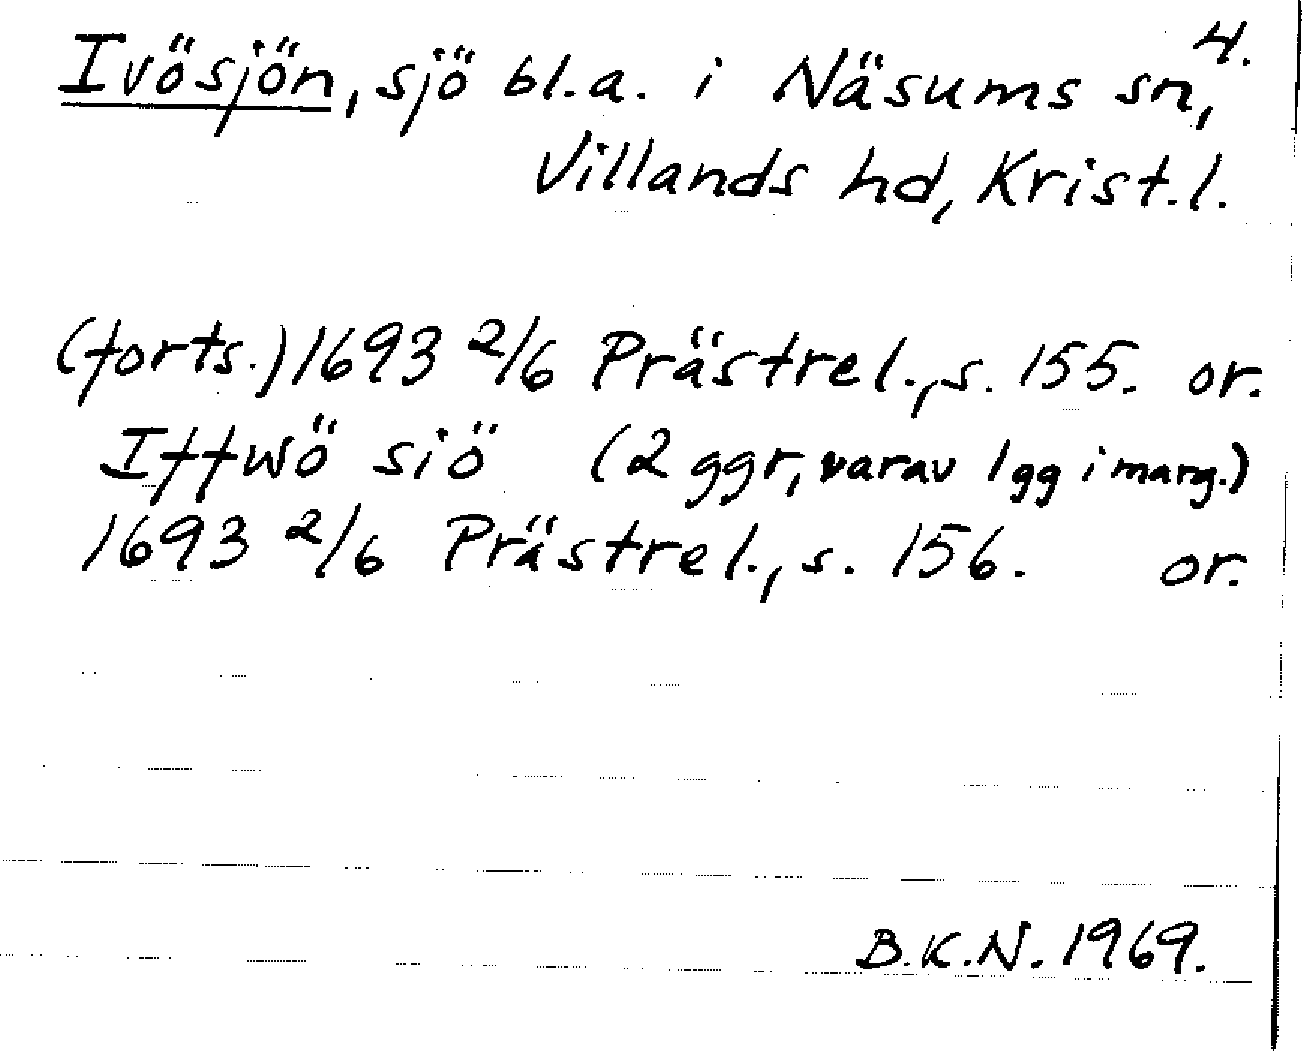 4.
Ivösjön, sjö bl.a. i Näsums sn,
Villands hd, Krist.l.
(forts.) 1693 2/6 Prästrel., s. 155. or.
Iffwö siö (2 ggr, varav 1 gg i marg.)
1693 2/6 Prästrel., s. 156. or.
B.K.N. 1969.